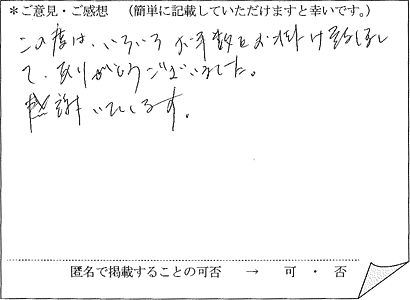 ＊ご意見・ご感想　（簡単に記載していただけますと幸いです。）
この度は、いろいろお手数をお掛け致しまし
て、ありがとうございました。
感謝いたします。
匿名で掲載することの可否　→　可　・　否